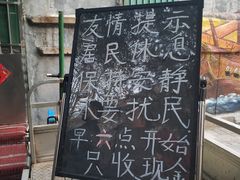 友情提示
居民休息
保持安静
不要扰民
早六点开始
只收现金